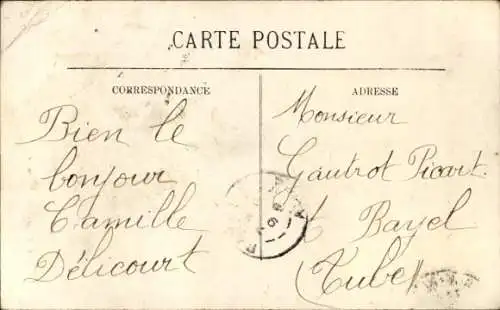 CARTE POSTALE
CORRESPONDANCE
Bien le
bonjour
Camille
Délicourt
ADRESSE
Monsieur
Gautrot Picart
à Bayel
(Aube)